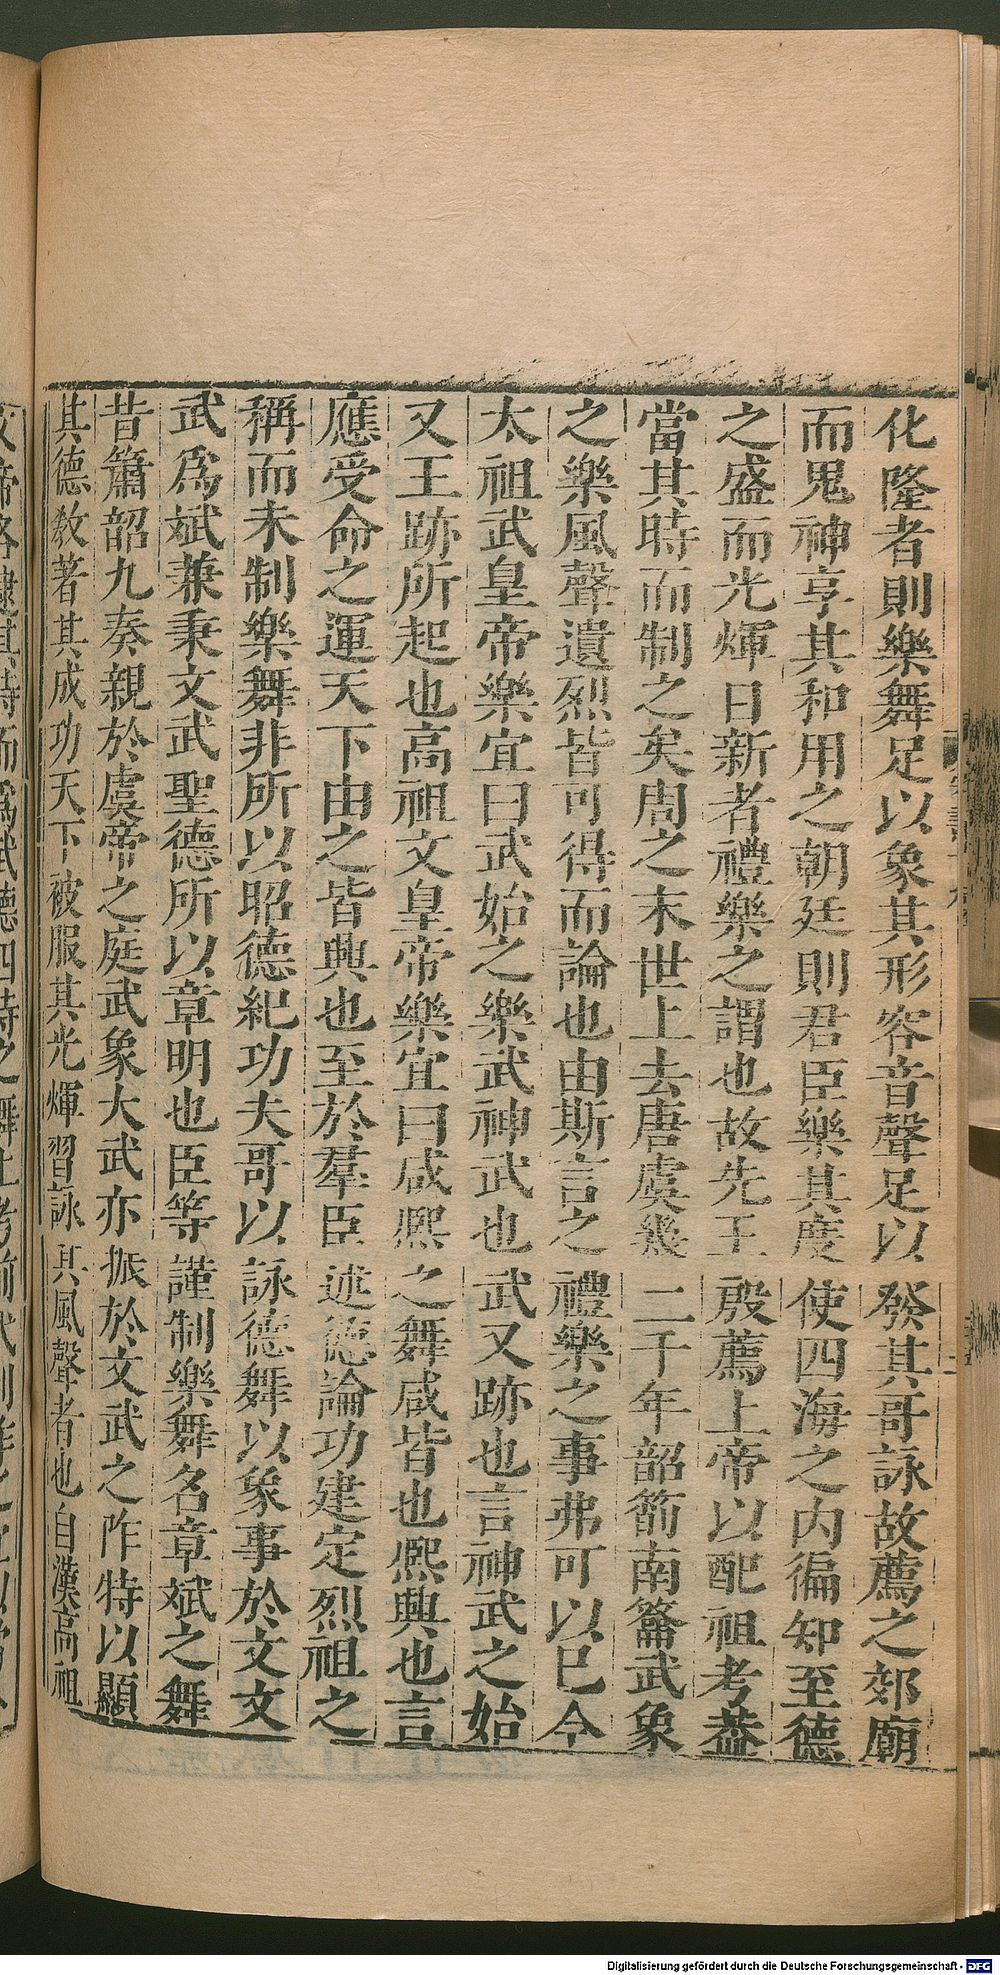 化隆者則樂舞足以象其形容音聲足以發其哥詠故薦之郊廟
而鬼神享其和用之朝廷則君臣樂其度使四海之內徧知至德
之盛而光煇日新者禮樂之謂也故先王殷薦上帝以配祖考葢
當其時而制之矣周之末世上去唐虞幾二千年韶箾南籥武象
之樂風聲遺烈皆可得而論也由斯言之禮樂之事弗可以已今
太祖武皇帝樂宜曰武始之樂武神武也武又跡也言神武之始
又王跡所起也高祖文皇帝樂宜曰咸熙之舞咸皆也熙興也言
應受命之運天下由之皆興也至於羣臣述德論功建定烈祖之
稱而未制樂舞非所以昭德紀功夫哥以詠德舞以象事於文文
武爲斌兼秉文武聖德所以章明也臣等謹制樂舞名章斌之舞
昔簫韶九奏親於虞帝之庭武象大武亦振於文武之阼特以顯
其德教著其成功天下被服其光煇習詠其風聲者也自漢高祖
文帝各逮其時而爲武德四時之舞上考前代制作之宜以當今
Digitalisierung gefördert durch die Deutsche Forschungsgemeinschaft - DFG